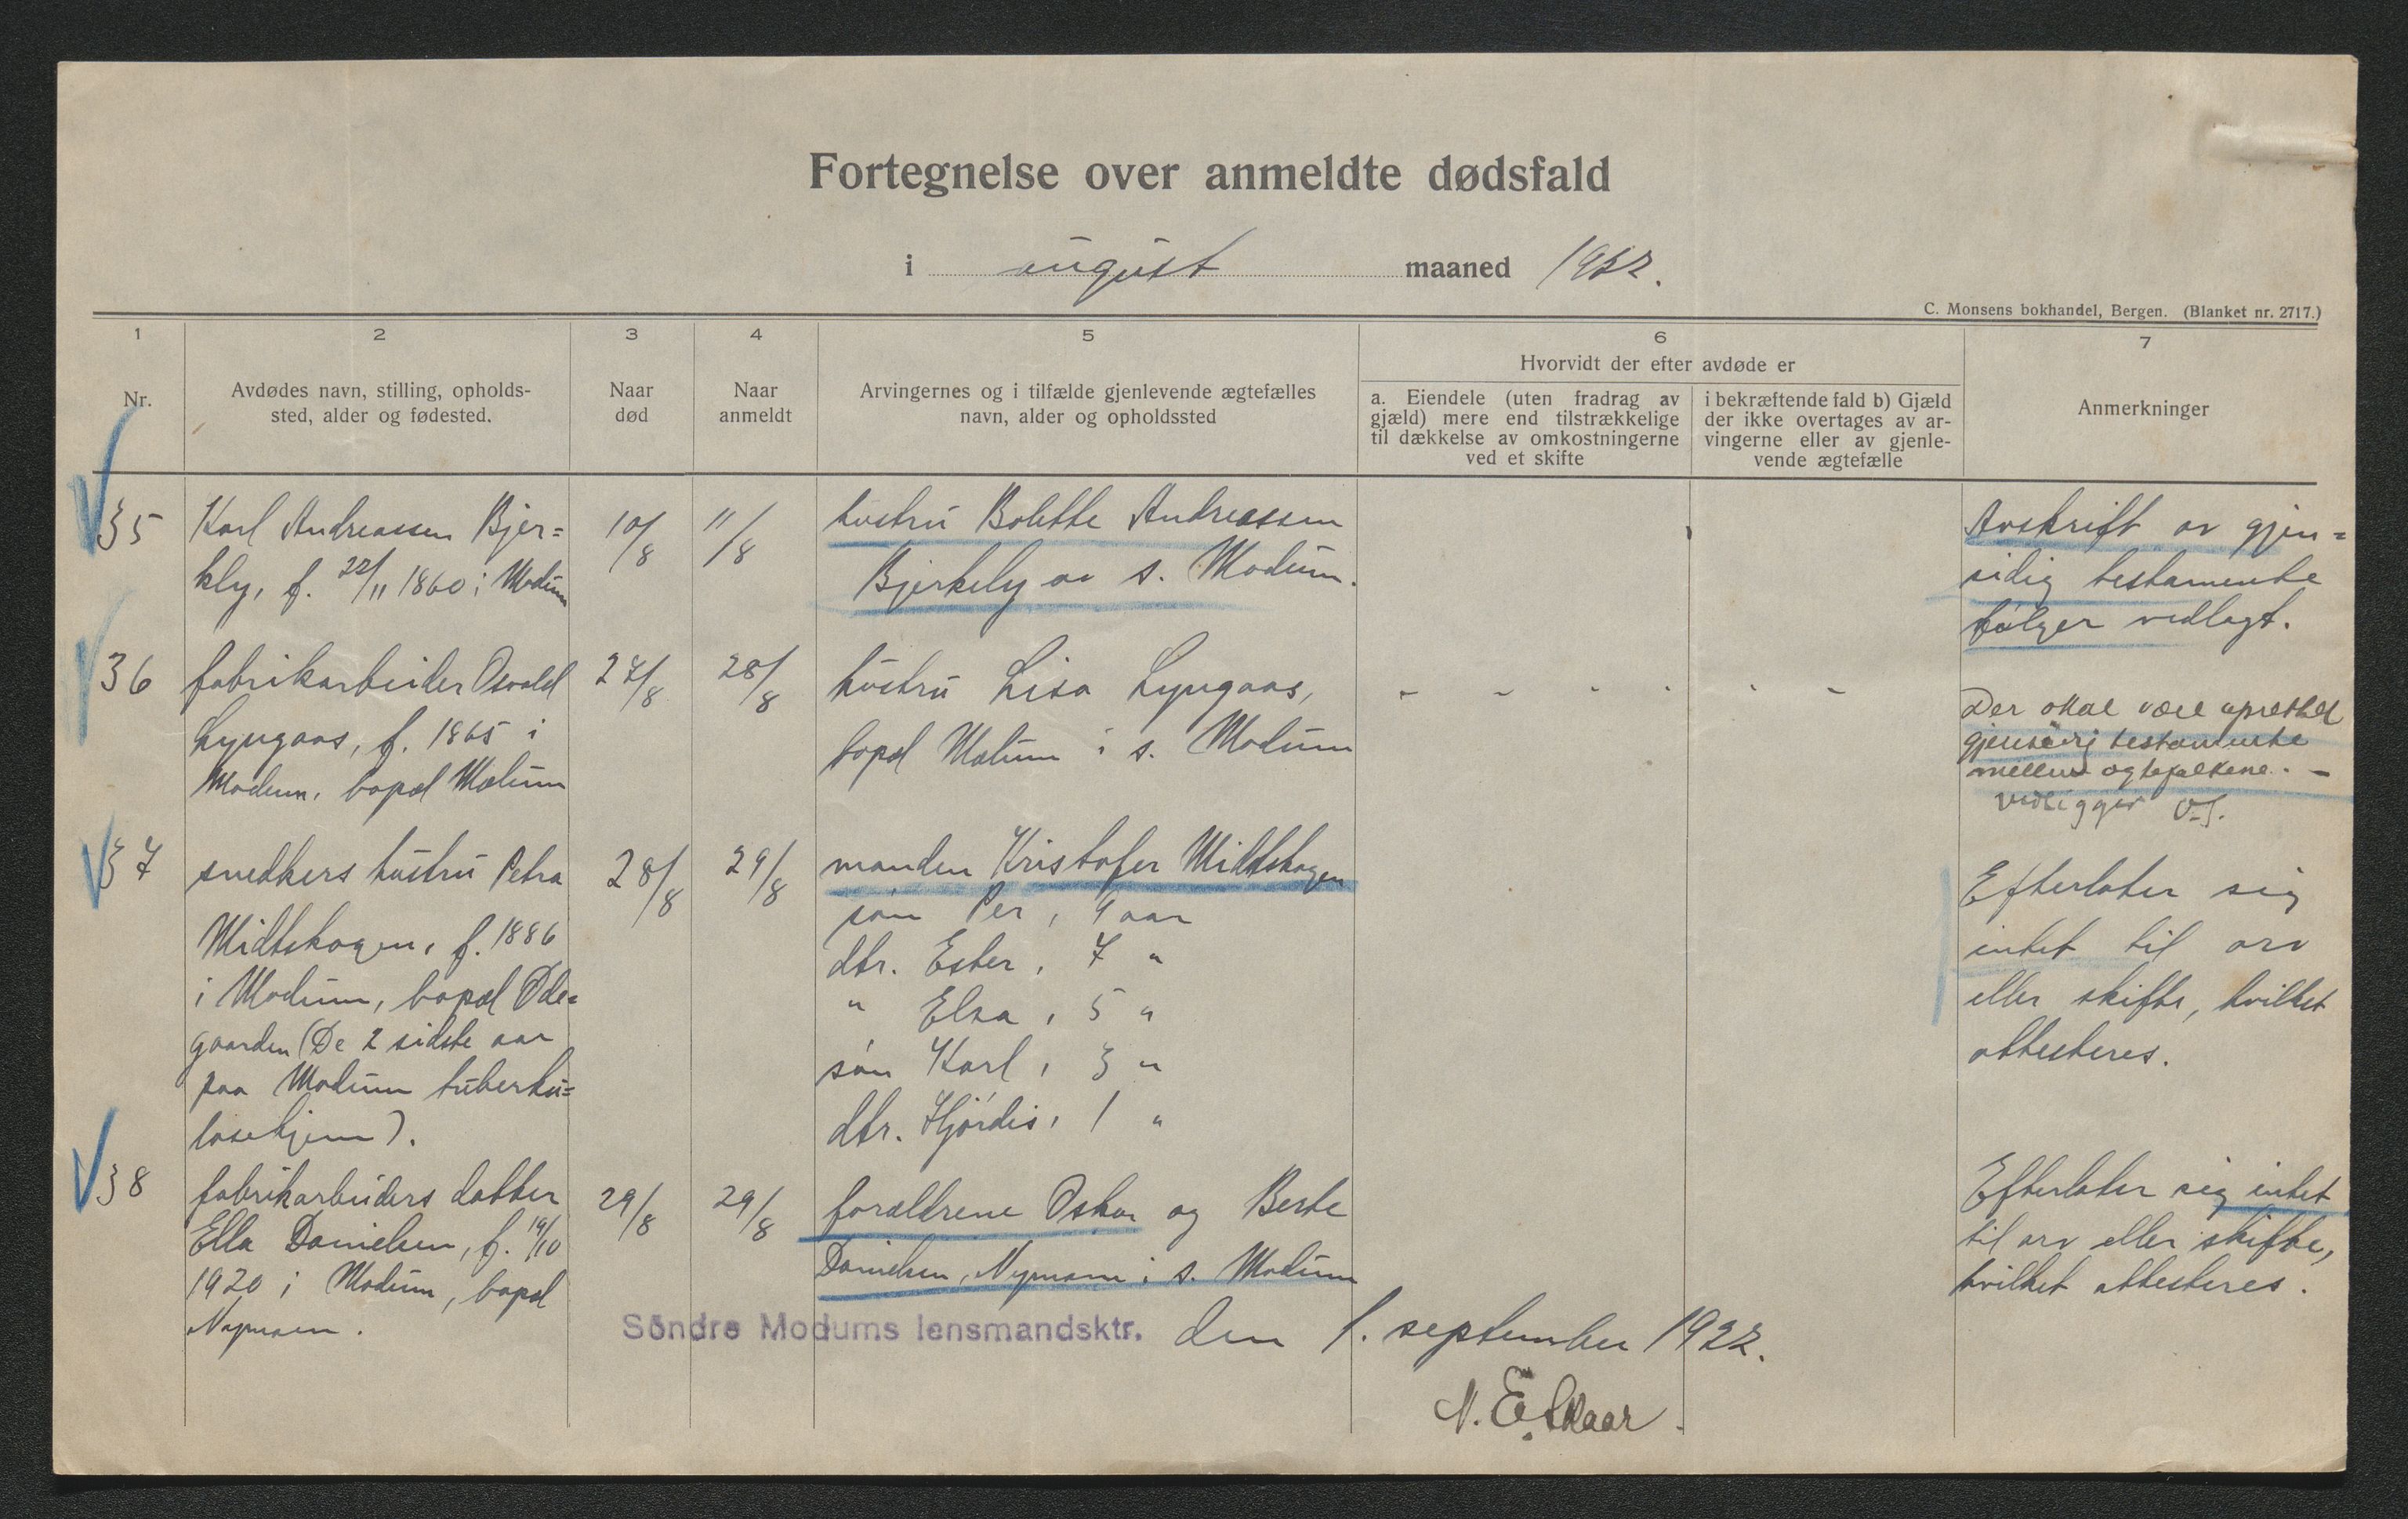 Fortegnelse over anmeldte dødsfald
i august maaned 1922.
C. Monsens bokhandel, Bergen. (Blanket nr. 2717.)
1 2 3 4 5 6 7
Nr.
Avdødes navn, stilling, opholds-
sted, alder og fødested.
Naar
død
Naar
anmeldt
Arvingernes og i tilfælde gjenlevende ægtefælles
navn, alder og opholdssted
Hvorvidt der efter avdøde er
a. Eiendele (uten fradrag av
gjæld) mere end tilstrækkelige
til dækkelse av omkostningerne
ved et skifte
i bekræftende fald b) Gjæld
der ikke overtages av ar-
vingerne eller av gjenle-
vende ægtefælle
Anmerkninger
35
Karl Andreassen Bjer=
kly, f. 22/11 1860 i Modum
10/8
11/8
hustru Bolette Andreassen
Bjerkely av s. Modum.
Avskrift av gjen=
sidig testamente
følger vedlagt.
36
fabrikarbeider Osvald
Lyngaas, f. 1865 i
Modum, bopæl Mælum
27/8
28/8
hustru Lisa Lyngaas,
bopæl Mælum i s. Modum
- - - - - -
Der skal være oprettet
gjensidig testamente
mellem ægtefælkene. -
vedligger
37
snedkers hustru Petra
Midtskogen, f. 1886
i Modum, bopæl Øde=
gaarden (De 2 sidste aar
paa Modum tuberku=
losehjem).
28/8
29/8
manden Kristofer Midtskogen
søn Per, 9 aar
dtr. Ester, 7 "
" Elsa, 5 "
søn Karl, 3 "
dtr. Hjørdis, 1 "
Efterlater sig
intet til arv
eller skifte, hvilket
attesteres.
38
fabrikarbeiders datter
Ella Danielsen, f. 19/10
1920 i Modum, bopæl
Nymoen.
29/8
29/8
forældrene Oskar og Berte
Danielsen, Nymoen i s. Modum
Efterlater sig intet
til arv eller skifte,
hvilket attesteres.
Söndre Modums lensmandsktr. den 1. september 1922.
N. E. Skaar.